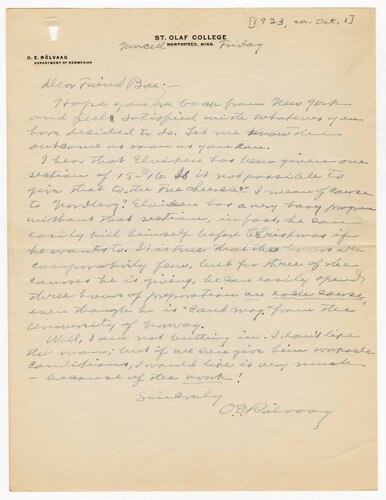 [1923, ca. Oct. 1]
ST. OLAF COLLEGE
NORTHFIELD, MINN.
O. E. RÖLVAAG
DEPARTMENT OF NORWEGIAN
Marcell Friday
Dear Friend Boe:-
I hope you are back from New York
and feel satisfied with whatever you
have decided to do. Let me know the
outcome as soon as you can.
I hear that Elviken has been given one
section of 15-16. Is it not possible to
give that to the I mean of course
to "Nordberg". Elviken has a very busy program
without that section, in fact, he can
easily kill himself before Christmas if
he wants to. It is true that the hours are
comparatively few, but for three of the
courses he is giving, he can easily spend
three hours of preparation on each course,
even though he is "Cand. mag." from the
University of Norway.
Well, I am not butting in. I don't like
the man; but if we can give him workable
conditions, I would like it very much
- because of the work!
Sincerely
O.E. Rölvaag